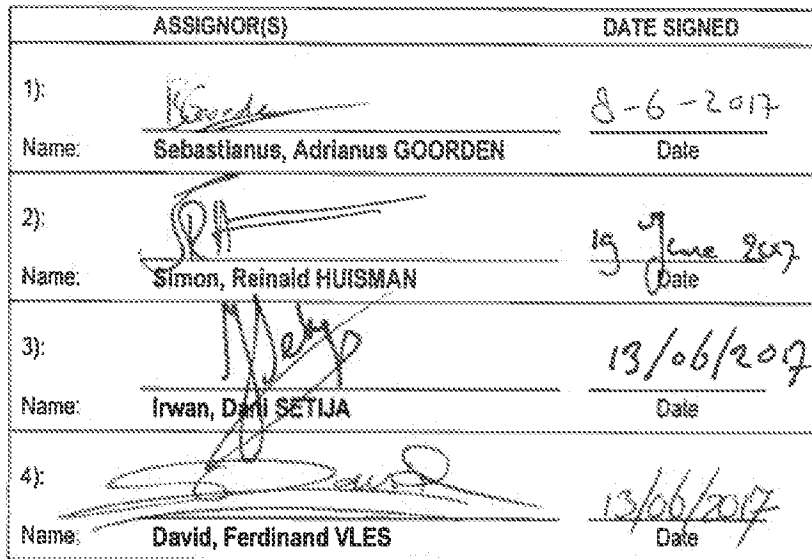 ASSIGNOR(S) DATE SIGNED
1): 8-6-2017
Name: Sebastianus, Adrianus GOORDEN Date
2): 19 June 2017
Name: Simon, Reinald HUISMAN Date
3): 13/06/2017
Name: Irwan, Dani SETIJA Date
4): 13/06/2017
Name: David, Ferdinand VLES Date